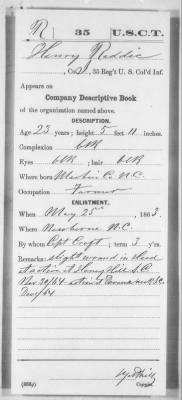 R | 35 | U.S.C.T.
Henry Reddic
, Co. , 35 Reg't U. S. Col'd Inf.
Appears on
Company Descriptive Book
of the organization named above.
DESCRIPTION.
Age 23 years; height 5 feet 11 inches.
Complexion blk
Eyes blk ; hair blk
Where born Martin Co. N.C.
Occupation Farmer
ENLISTMENT.
When May 25", 1863.
Where Newberne N.C.
By whom Capt Croft ; term 3 y'rs.
Remarks: slight wound in Head
in action at Honey Hill S.C.
Nov. 30/64
Dec/64
Copyist.